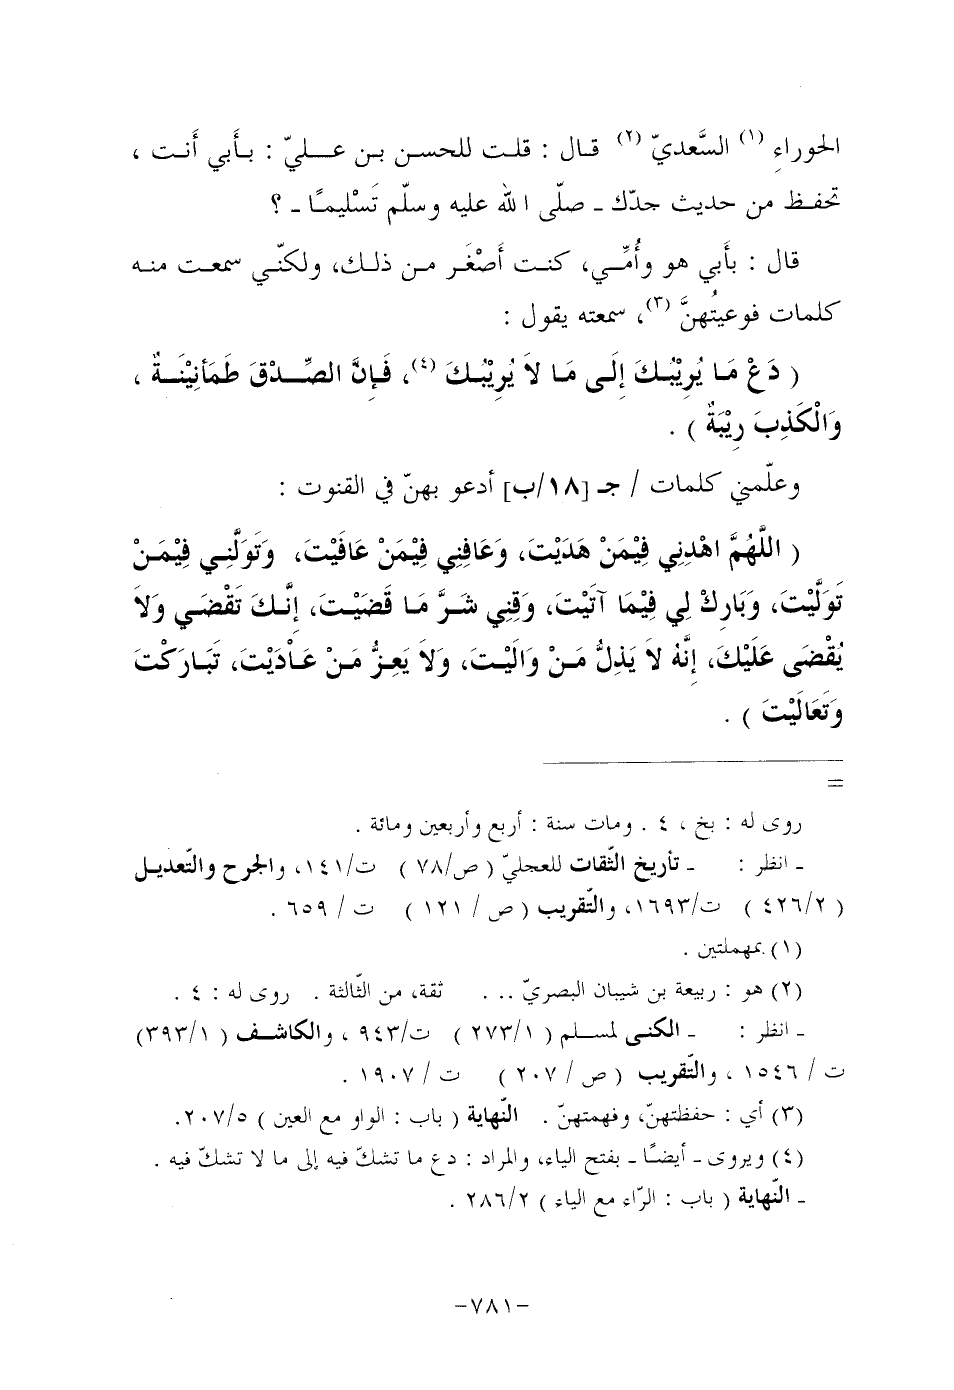 الحوراءِ (١) السَّعديّ (٢) قال : قلت للحسن بن عليّ : بأبي أنت ،
تحفظ من حديث جدّك ـ صلّى الله عليه وسلّم تَسْليمًا ـ ؟
قال : بأبي هو وأُمِّي، كنت أصْغَر من ذلك، ولكنّي سمعت منه
كلمات فوعيتُهنَّ (٣)، سمعته يقول :
( دَعْ مَا يُرِيْبُكَ إِلَى مَا لاَ يُرِيْبُكَ (٤)، فَإِنَّ الصِّدْقَ طَمَأنِيْنَةٌ ،
وَالْكَذِبَ رِيْبَةٌ ) .
وعلّمني كلمات / جـ [١٨/ب] أدعو بهنّ في القنوت :
( اللَّهُمَّ اهْدِنِي فِيْمَنْ هَدَيْتَ، وَعَافِنِي فِيْمَنْ عَافَيْتَ، وَتَوَلَّنِي فِيْمَنْ
تَوَلَّيْتَ، وَبَارِكْ لِي فِيْمَا آتَيْتَ، وَقِنِي شَرَّ مَا قَضَيْتَ، إِنَّكَ تَقْضِي وَلاَ
يُقْضَى عَلَيْكَ، إِنَّهُ لاَ يَذِلُّ مَنْ وَالَيْتَ، وَلاَ يَعِزُّ مَنْ عَادَيْتَ، تَبَارَكْتَ
وَتَعَالَيْتَ ) .
=
روى له : بخ ، ٤ . ومات سنة : أربع وأربعين ومائة .
ـ انظر : ـ تأريخ الثّقات للعجليّ ( ص/٧٨ ) ت/١٤١، والجرح والتّعديل
( ٤٢٦/٢ ) ت/١٦٩٣، والتّقريب ( ص / ١٢١ ) ت / ٦٥٩ .
(١) بمهملتين .
(٢) هو : ربيعة بن شيبان البصريّ ... ثقة، من الثّالثة . روى له : ٤ .
ـ انظر : ـ الكنى لمسلم ( ٢٧٣/١ ) ت/٩٤٣ ، والكاشف ( ٣٩٣/١)
ت / ١٥٤٦ ، والتّقريب ( ص / ٢٠٧ ) ت / ١٩٠٧ .
(٣) أي : حفظتهنّ، وفهمتهنّ . النّهاية ( باب : الواو مع العين ) ٢٠٧/٥.
(٤) ويروى ـ أيضًا ـ بفتح الياء، والمراد : دع ما تشكّ فيه إلى ما لا تشكّ فيه .
ـ النّهاية ( باب : الرّاء مع الياء ) ٢٨٦/٢ .
-٧٨١-